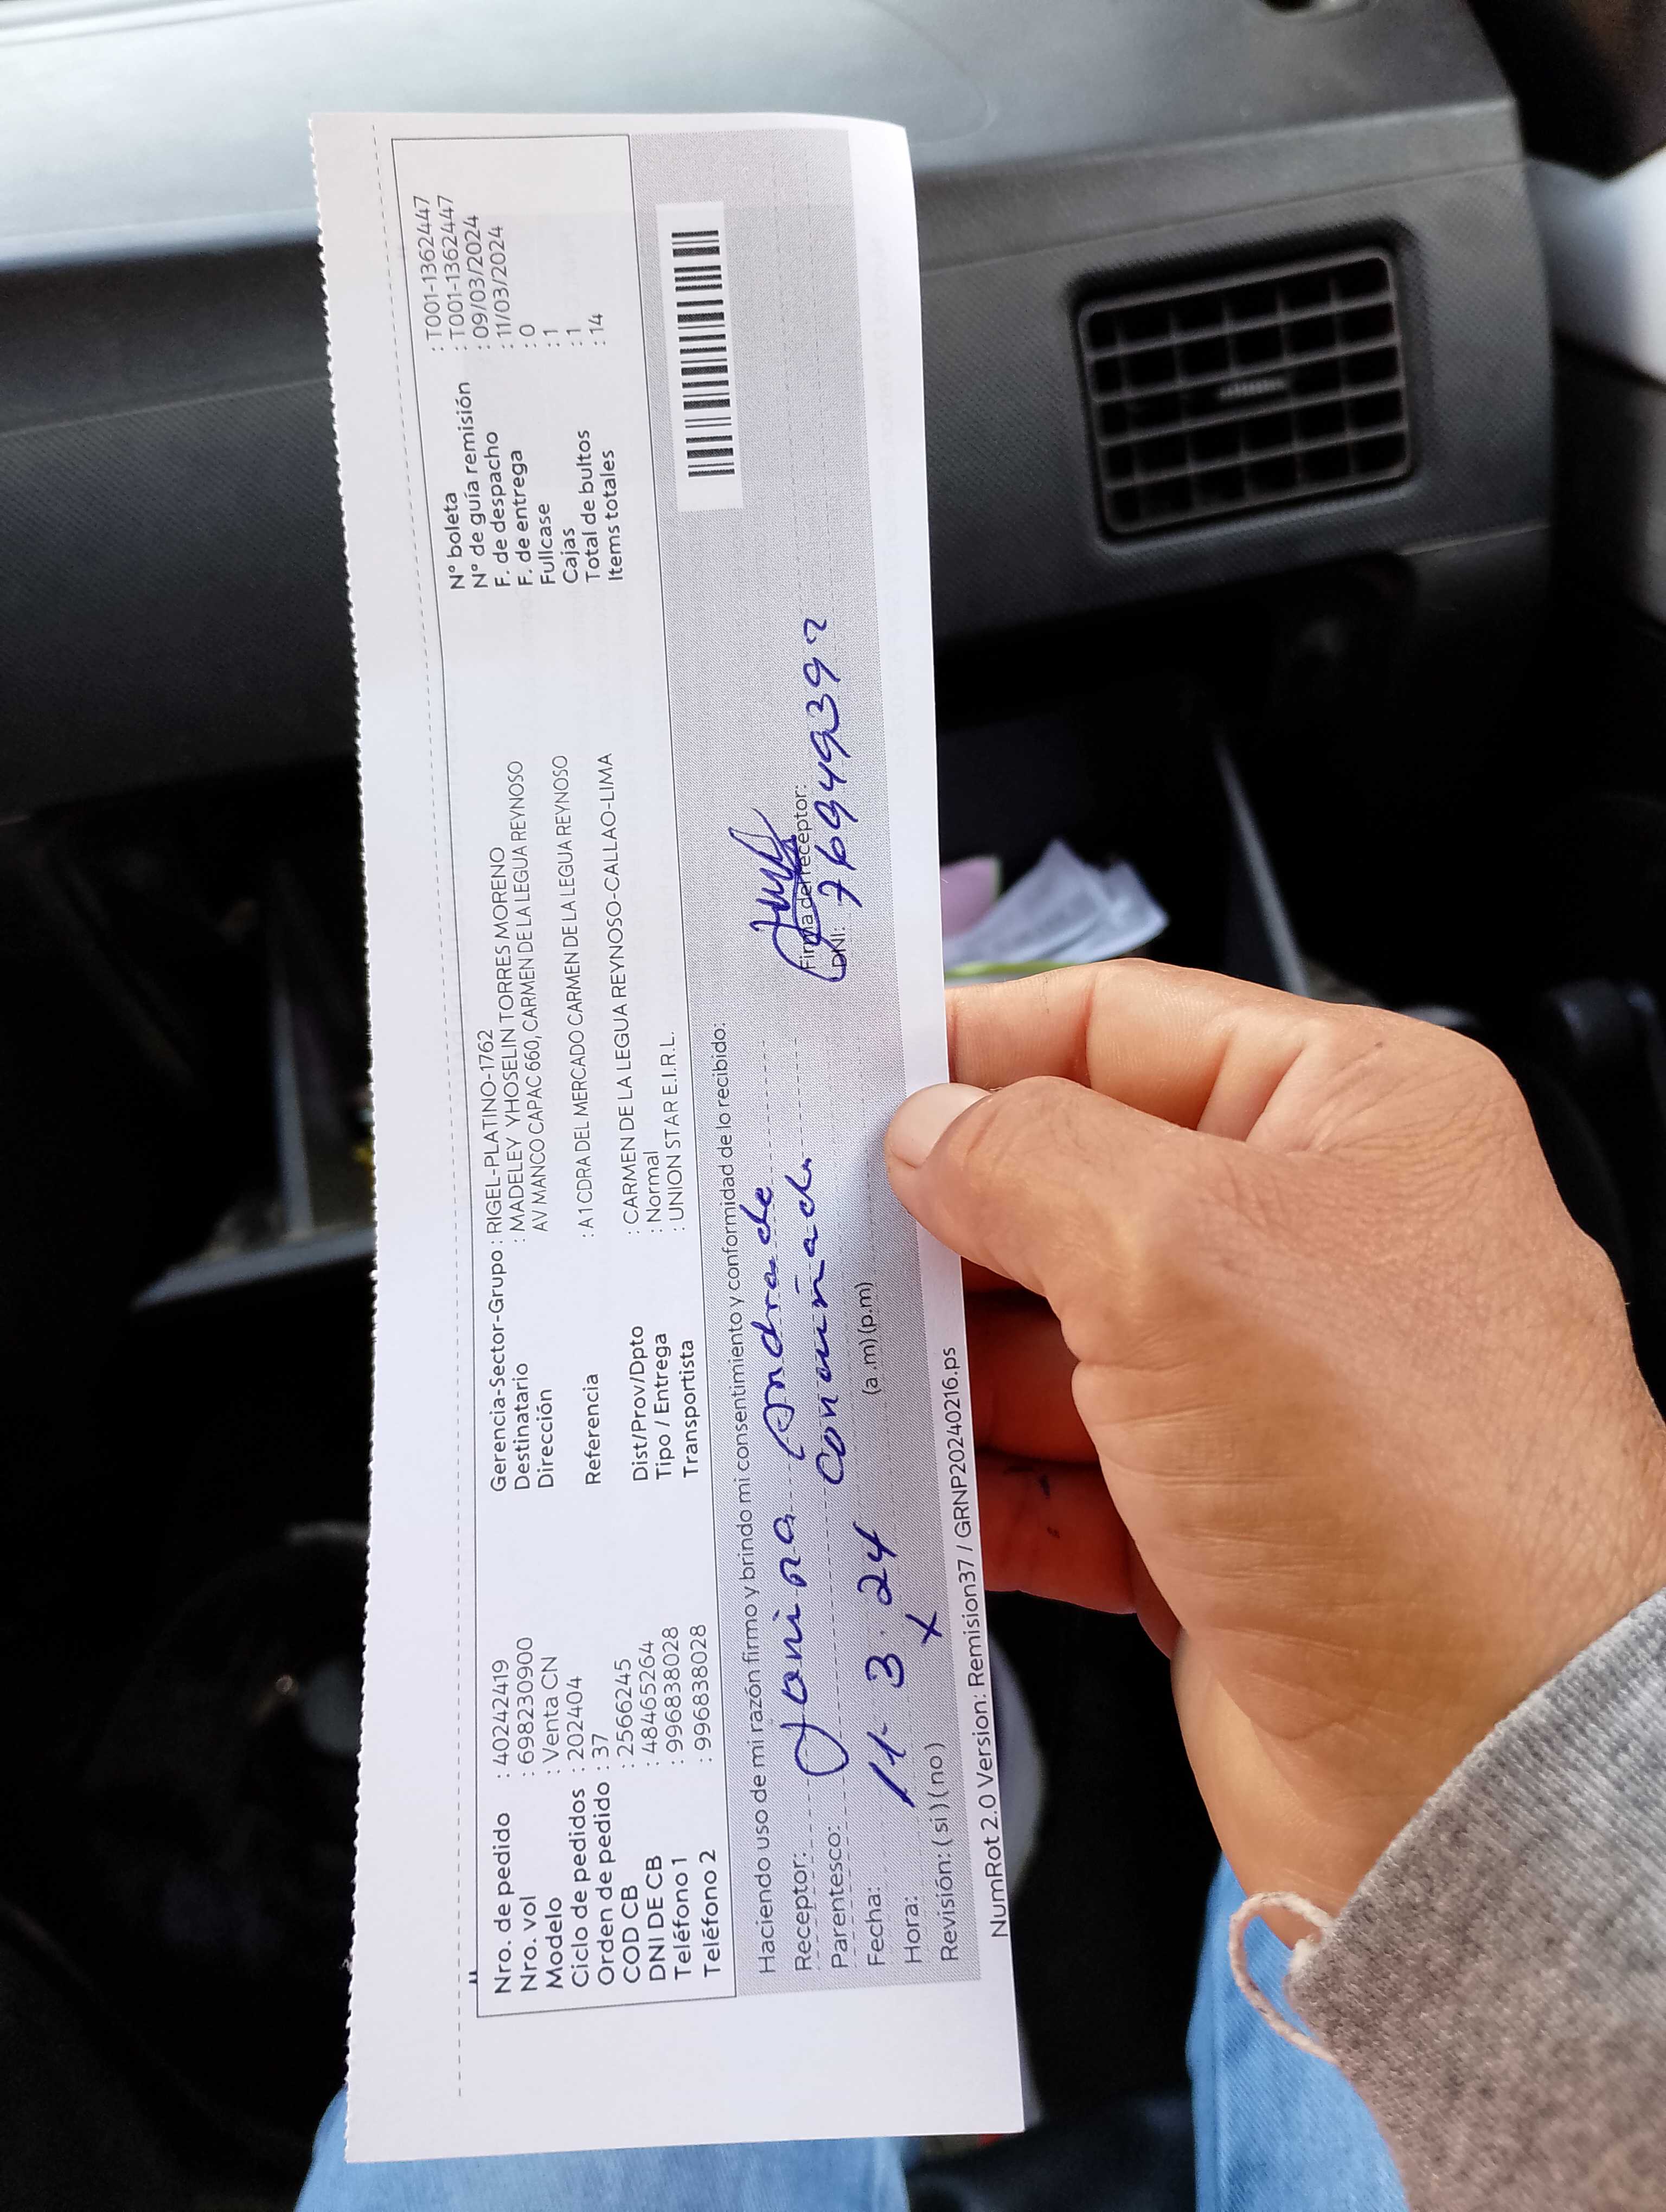 Nro. de pedido : 40242419
Nro. vol : 698230900
Modelo : Venta CN
Ciclo de pedidos : 202404
Orden de pedido : 37
COD CB : 2566245
DNI DE CB : 48465264
Teléfono 1 : 996838028
Teléfono 2 : 996838028
Gerencia-Sector-Grupo : RIGEL-PLATINO-1762
Destinatario : MADELEY YHOSELIN TORRES MORENO
Dirección AV MANCO CAPAC 660, CARMEN DE LA LEGUA REYNOSO
Referencia : A 1 CDRA DEL MERCADO CARMEN DE LA LEGUA REYNOSO
Dist/Prov/Dpto : CARMEN DE LA LEGUA REYNOSO-CALLAO-LIMA
Tipo / Entrega : Normal
Transportista : UNION STAR E.I.R.L.
N° boleta : T001-1362447
N° de guía remisión : T001-1362447
F. de despacho : 09/03/2024
F. de entrega : 11/03/2024
Fullcase : 0
Cajas : 1
Total de bultos : 1
Items totales : 14
Haciendo uso de mi razón firmo y brindo mi consentimiento y conformidad de lo recibido:
Receptor: Andrade
Parentesco:
Fecha: 11. 3. 24
Hora: (a.m) (p.m)
Revisión: ( si ) ( no ) x
Firma del receptor:
DNI:
NumRot 2.0 Version: Remision37 / GRNP20240216.ps